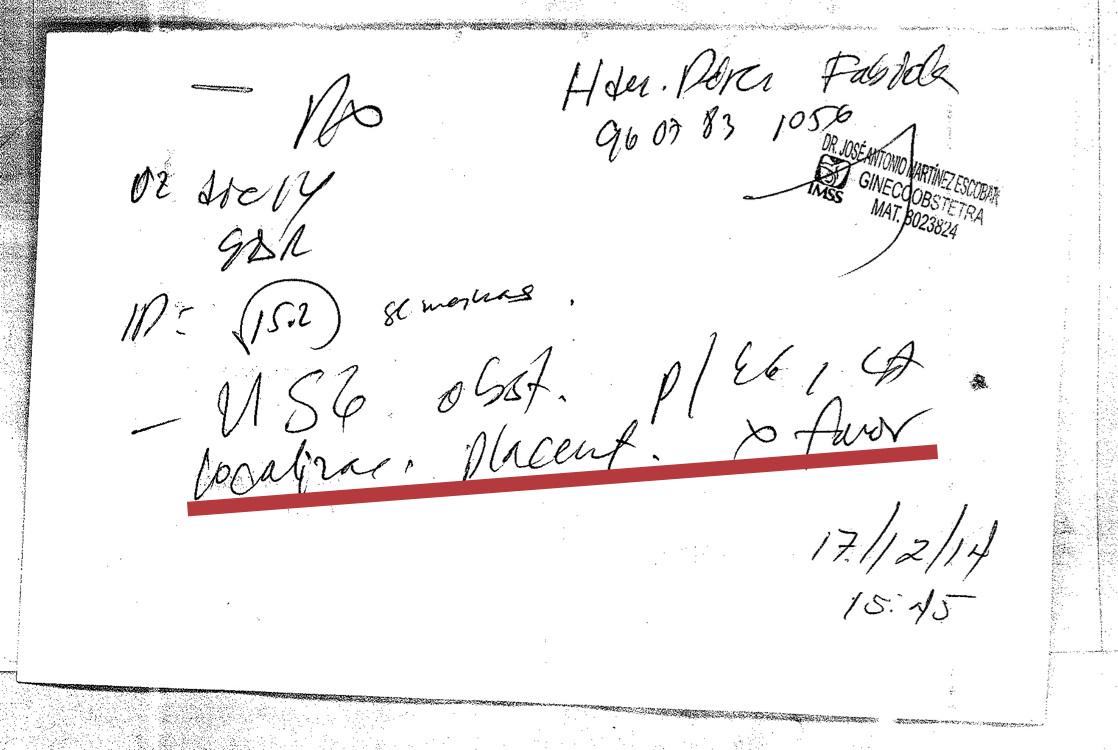 Fabiola
96 07 83 1056
DR. JOSÉ ANTONIO MARTÍNEZ ESCOBAR
GINECOOBSTETRA
MAT. 8023824
IMSS
02 dic 14
ID= 15.2 semanas.
- USG obst. p/ EG,
localizac. placent. x favor
17/12/14
15:45